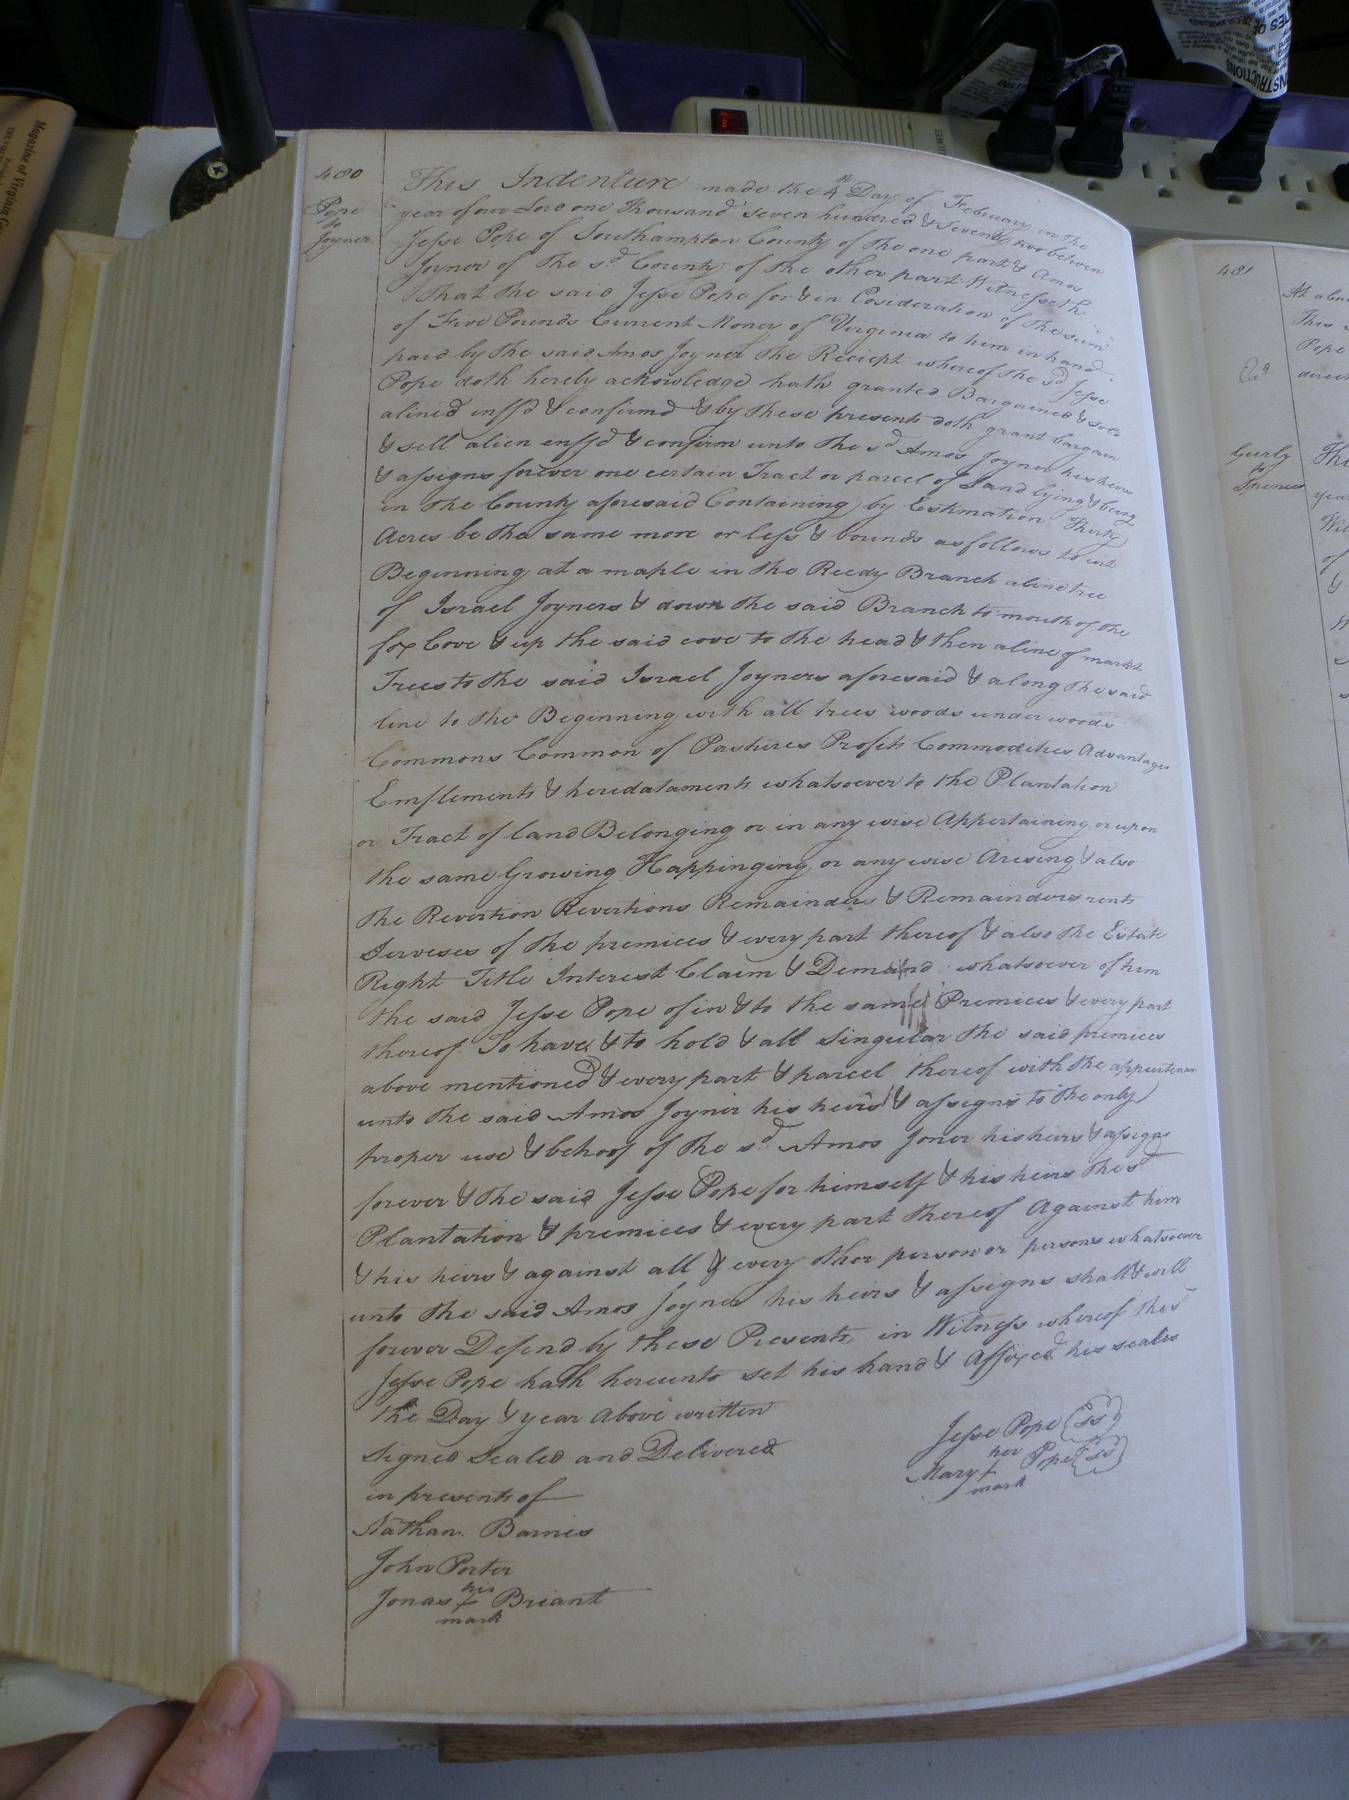 480
Pope
to
Joyner
This Indenture made the 4th Day of February in the
year of our Lord one Thousand Seven hundred & Seventy two between
Jesse Pope of Southampton County of the one part & Amos
Joyner of the sd. County of the other part Witnesseth
That the said Jesse Pope for & in Cosideration of the sum
of Five Pounds Current Money of Virginia to him in hand
paid by the said Amos Joyner the Reciept whereof the sd Jesse
Pope doth hereby acknowledge hath granted Bargained & sold
aliend enffd & confirmd & by these presents doth grant bargain
& sell alien enffd & confirm unto the sd Amos Joyner his heirs
& assigns forever one certain Tract or parcel of Land lying & being
in the County aforesaid Containing by Estimation Thirty
Acres be the same more or less & bounds as follows to wit
Beginning at a maple in the Reedy Branch a line tree
of Israel Joyners & down the said Branch to mouth of the
fox Cove & up the said cove to the head & then a line of markt
Trees to the said Israel Joyners aforesaid & along the said
line to the Beginning with all trees woods under woods
Commons Common of Pastures Profits Commodities Advantages
Emflements & heredataments whatsoever to the Plantation
or Tract of land Belonging or in any wise Appertaining or upon
the same Growing Happinging or any wise Arising & also
the Revertion Revertions Remainder & Remainders rents
Serveses of the premices & every part thereof & also the Estate
Right Title Interest Claim & Demand whatsoever of him
the said Jesse Pope of in & to the same Premices & every part
thereof To have & to hold & all Singular the said premices
above mentioned & every part & parcel thereof with the appurtenan
unto the said Amos Joyner his heirs & assigns to the only
proper use & behoof of the sd. Amos Joner his heirs & assigns
forever & the said Jesse Pope for himself & his heirs the sd
Plantation & premices & every part thereof Against him
& his heirs & against all & every other person or persons whatsoever
unto the said Amos Joyner his heirs & assigns shall & will
forever Defend by these Presents in Witness whereof the sd
Jesse Pope hath hereunto set his hand & Affixed his seales
the Day & year Above written
Signed Sealed and Delivered
in presents of
Jesse Pope (ss)
her
Mary + Pope (ss)
mark
Nathan Barnes
John Porter
his
Jonas + Briant
mark
481
At a
This
Pope
Gurly
to
Spences
The
year
of
&
Magazine of Virginia
INSTRUCTIONS